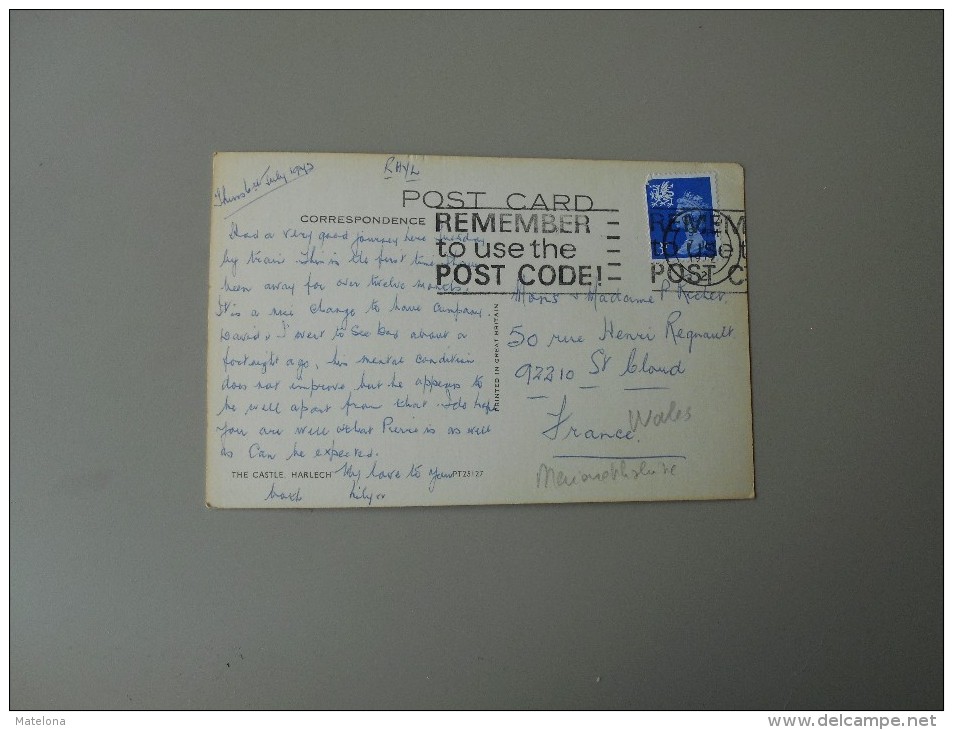 RHYL
July
POST CARD
CORRESPONDENCE
REMEMBER
to use the
POST CODE!
REMEM
to use t
POST C
Had a very good journey here Tuesday
by train. This is the first time
been away for over twelve months.
It is a nice change to have company.
David & I went to see Dad about a
fortnight ago, his mental condition
does not improve, but he appears to
be well apart from that. I do hope
you are well & that Pierre is as well
as can be expected.
My love to you
both
THE CASTLE, HARLECH
PT25127
PRINTED IN GREAT BRITAIN
Mons & Madame P.
50 rue Henri Regnault
92210 St Cloud
France
Wales
Merionethshire
Matelona
www.delcampe.net